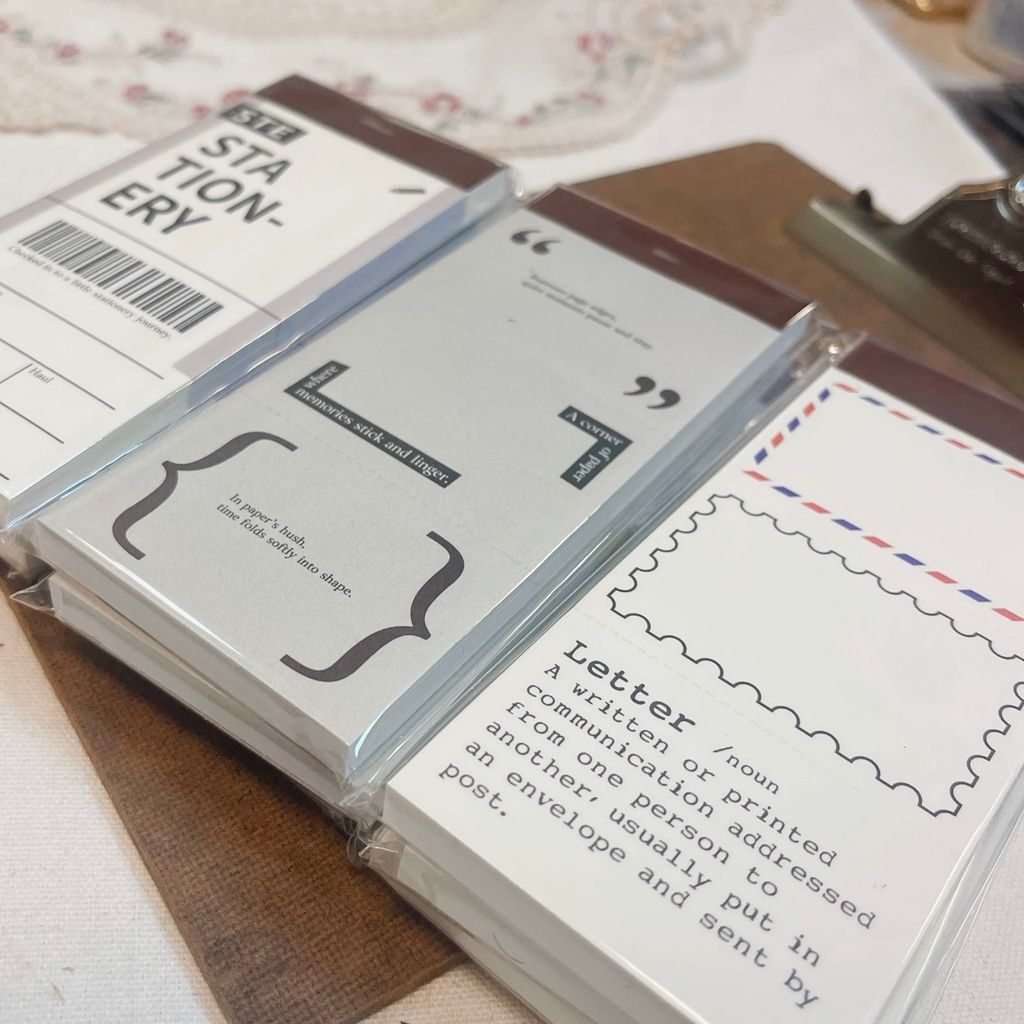 STE
STA
TION-
ERY
Checked in to a little stationery journey.
Haul
“
”
where
memories stick and linger.
A corner
of paper
{
In paper's hush,
time folds softly into shape.
}
Letter /noun
A written or printed
communication addressed
from one person to
another, usually put in
an envelope and sent by
post.